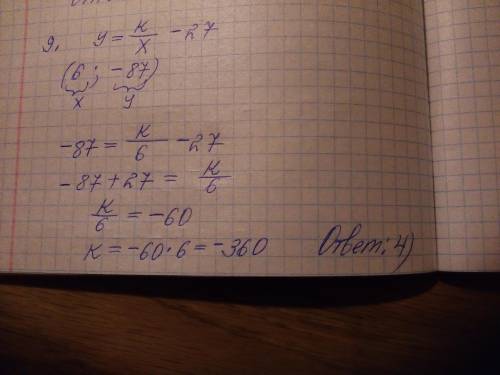 9. y = к/x - 27
(6 ; -87)
x y
-87 = к/6 - 27
-87 + 27 = к/6
к/6 = -60
к = -60 · 6 = -360 Ответ: 4)